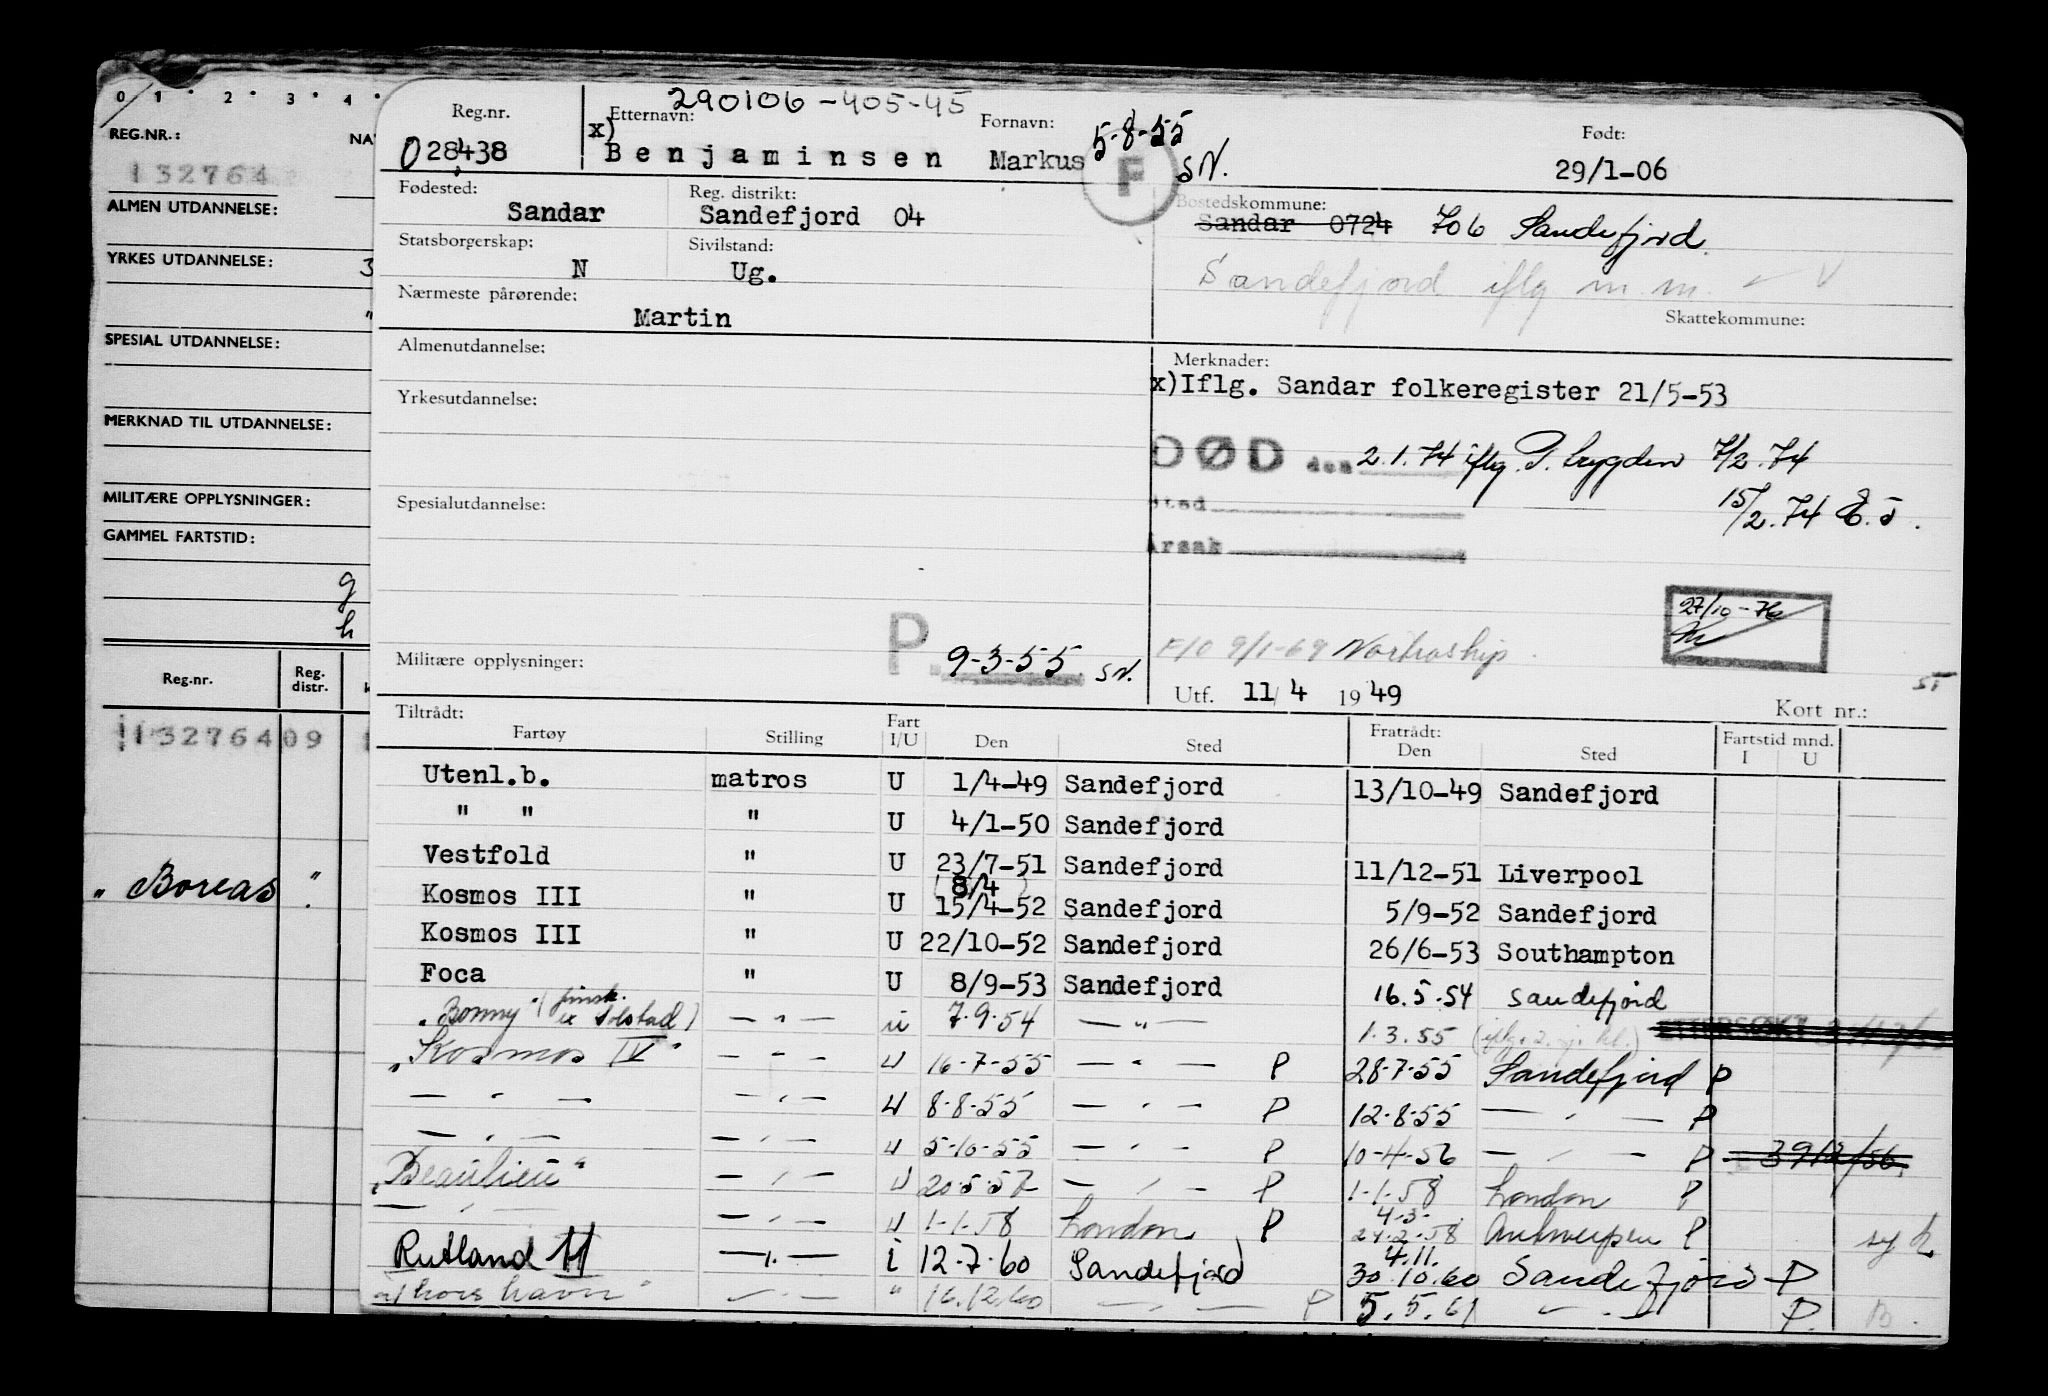 0 1 2 3 4
REG.NR.: NA
132764
ALMEN UTDANNELSE:
YRKES UTDANNELSE: 3
"
SPESIAL UTDANNELSE:
MERKNAD TIL UTDANNELSE:
MILITÆRE OPPLYSNINGER:
GAMMEL FARTSTID:
g
h
Reg.nr. Reg. distr.
13276409
„ Boreas "
290106-405-45
Reg.nr. Etternavn: Fornavn: Født:
028438 x) Benjaminsen Markus 5-8-55 F SN. 29/1-06
Fødested: Reg. distrikt: Bostedskommune:
Sandar Sandefjord 04 Sandar 0724 706 Sandefjord.
Statsborgerskap: Sivilstand:
N Ug. Sandefjord iflg m.m. V
Nærmeste pårørende: Skattekommune:
Martin
Almenutdannelse: Merknader:
x)Iflg. Sandar folkeregister 21/5-53
Yrkesutdannelse:
DØD den 2.1.74 iflg. T. trygden 7/2.74
Spesialutdannelse: Sted 15/2.74 E.J.
Årsak
27/10-76
P. 9-3-55 SN. F/O 9/1-69 Nortraship.
Militære opplysninger:
Utf. 11/4 1949 Kort nr.:
Tiltrådt: Fratrådt: Fartstid mnd.
Fartøy Stilling Fart I/U Den Sted Den Sted I U
Utenl.b. matros U 1/4-49 Sandefjord 13/10-49 Sandefjord
" " " U 4/1-50 Sandefjord
Vestfold " U 23/7-51 Sandefjord 11/12-51 Liverpool
(8/4)
Kosmos III " U 15/4-52 Sandefjord 5/9-52 Sandefjord
Kosmos III " U 22/10-52 Sandefjord 26/6-53 Southampton
Foca " U 8/9-53 Sandefjord 16.5.54 Sandefjord
„Bonny" (finsk. ex Solstad) — " — u 7.9.54 — " — 1.3.55 ETTERSØKT
„Kosmos IV" — " — U 16-7-55 — " — P 28-7-55 Sandefjord P
— " — — " — U 8-8-55 — " — P 12-8-55 — " — P
— " — — " — U 5-10-55 — " — P 10-4-56 — " — P
„Beaulieu" — " — U 20-5-57 — " — P 1-1-58 London P
— " — — " — U 1-1-58 London P 4-3- 24-2-58 Antwerpen P
Rutland II — " — i 12-7-60 Sandefjord 4.11. 30.10.60 Sandefjord P
„Thorshavn" — " — " 16.12.60 — " — P 5.5.61 — " — P. B.